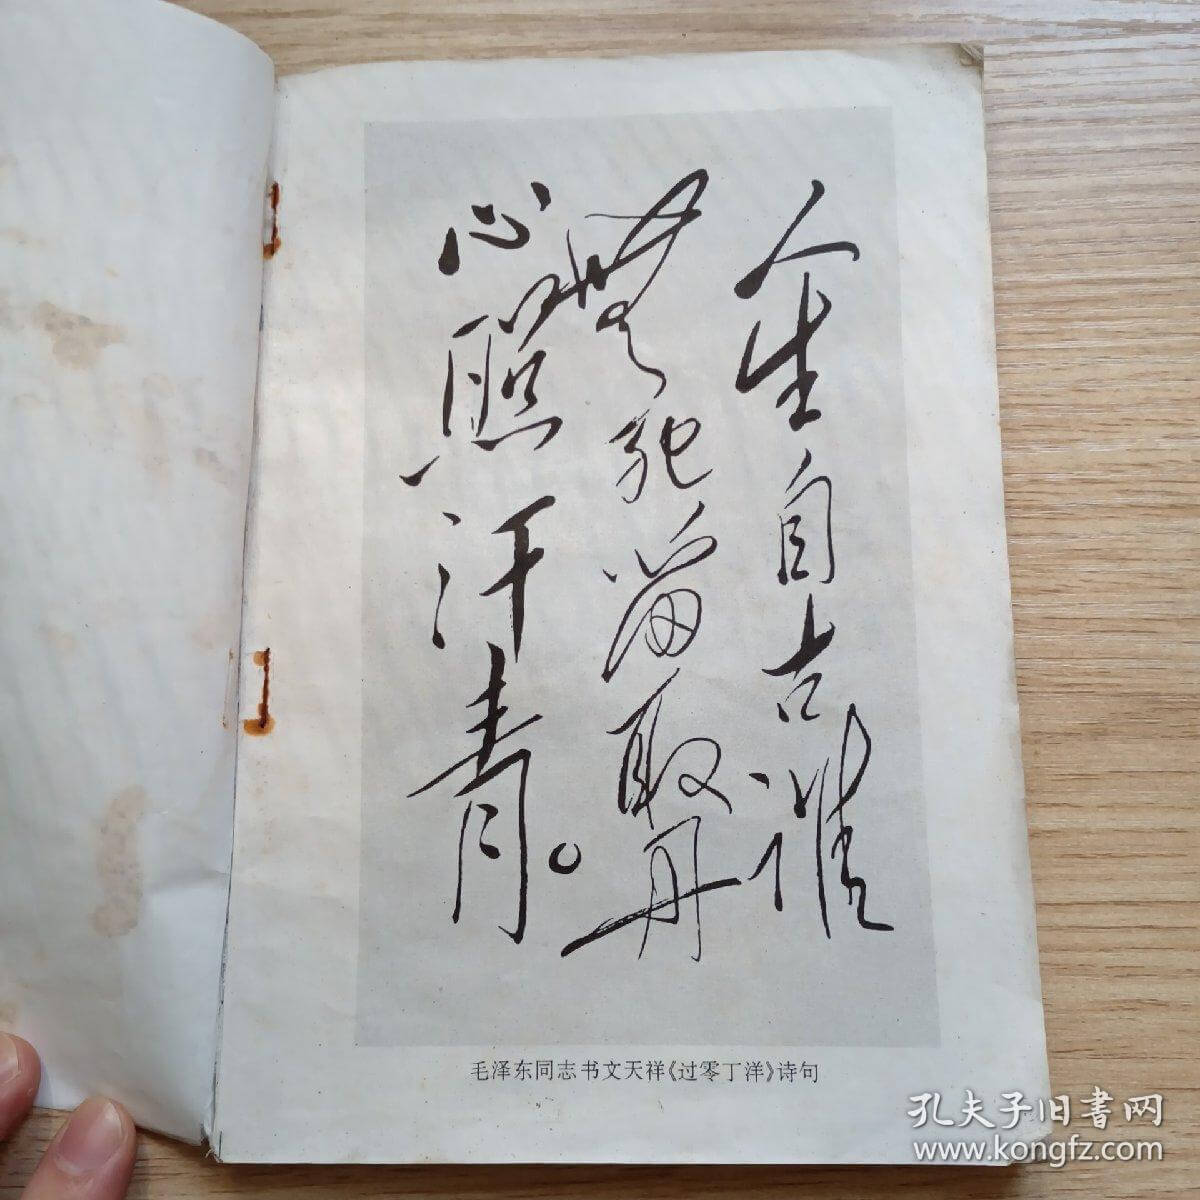 人生自古谁
无死留取丹
心照汗青。
毛泽东同志书文天祥《过零丁洋》诗句
孔夫子旧書网
www.kongfz.com